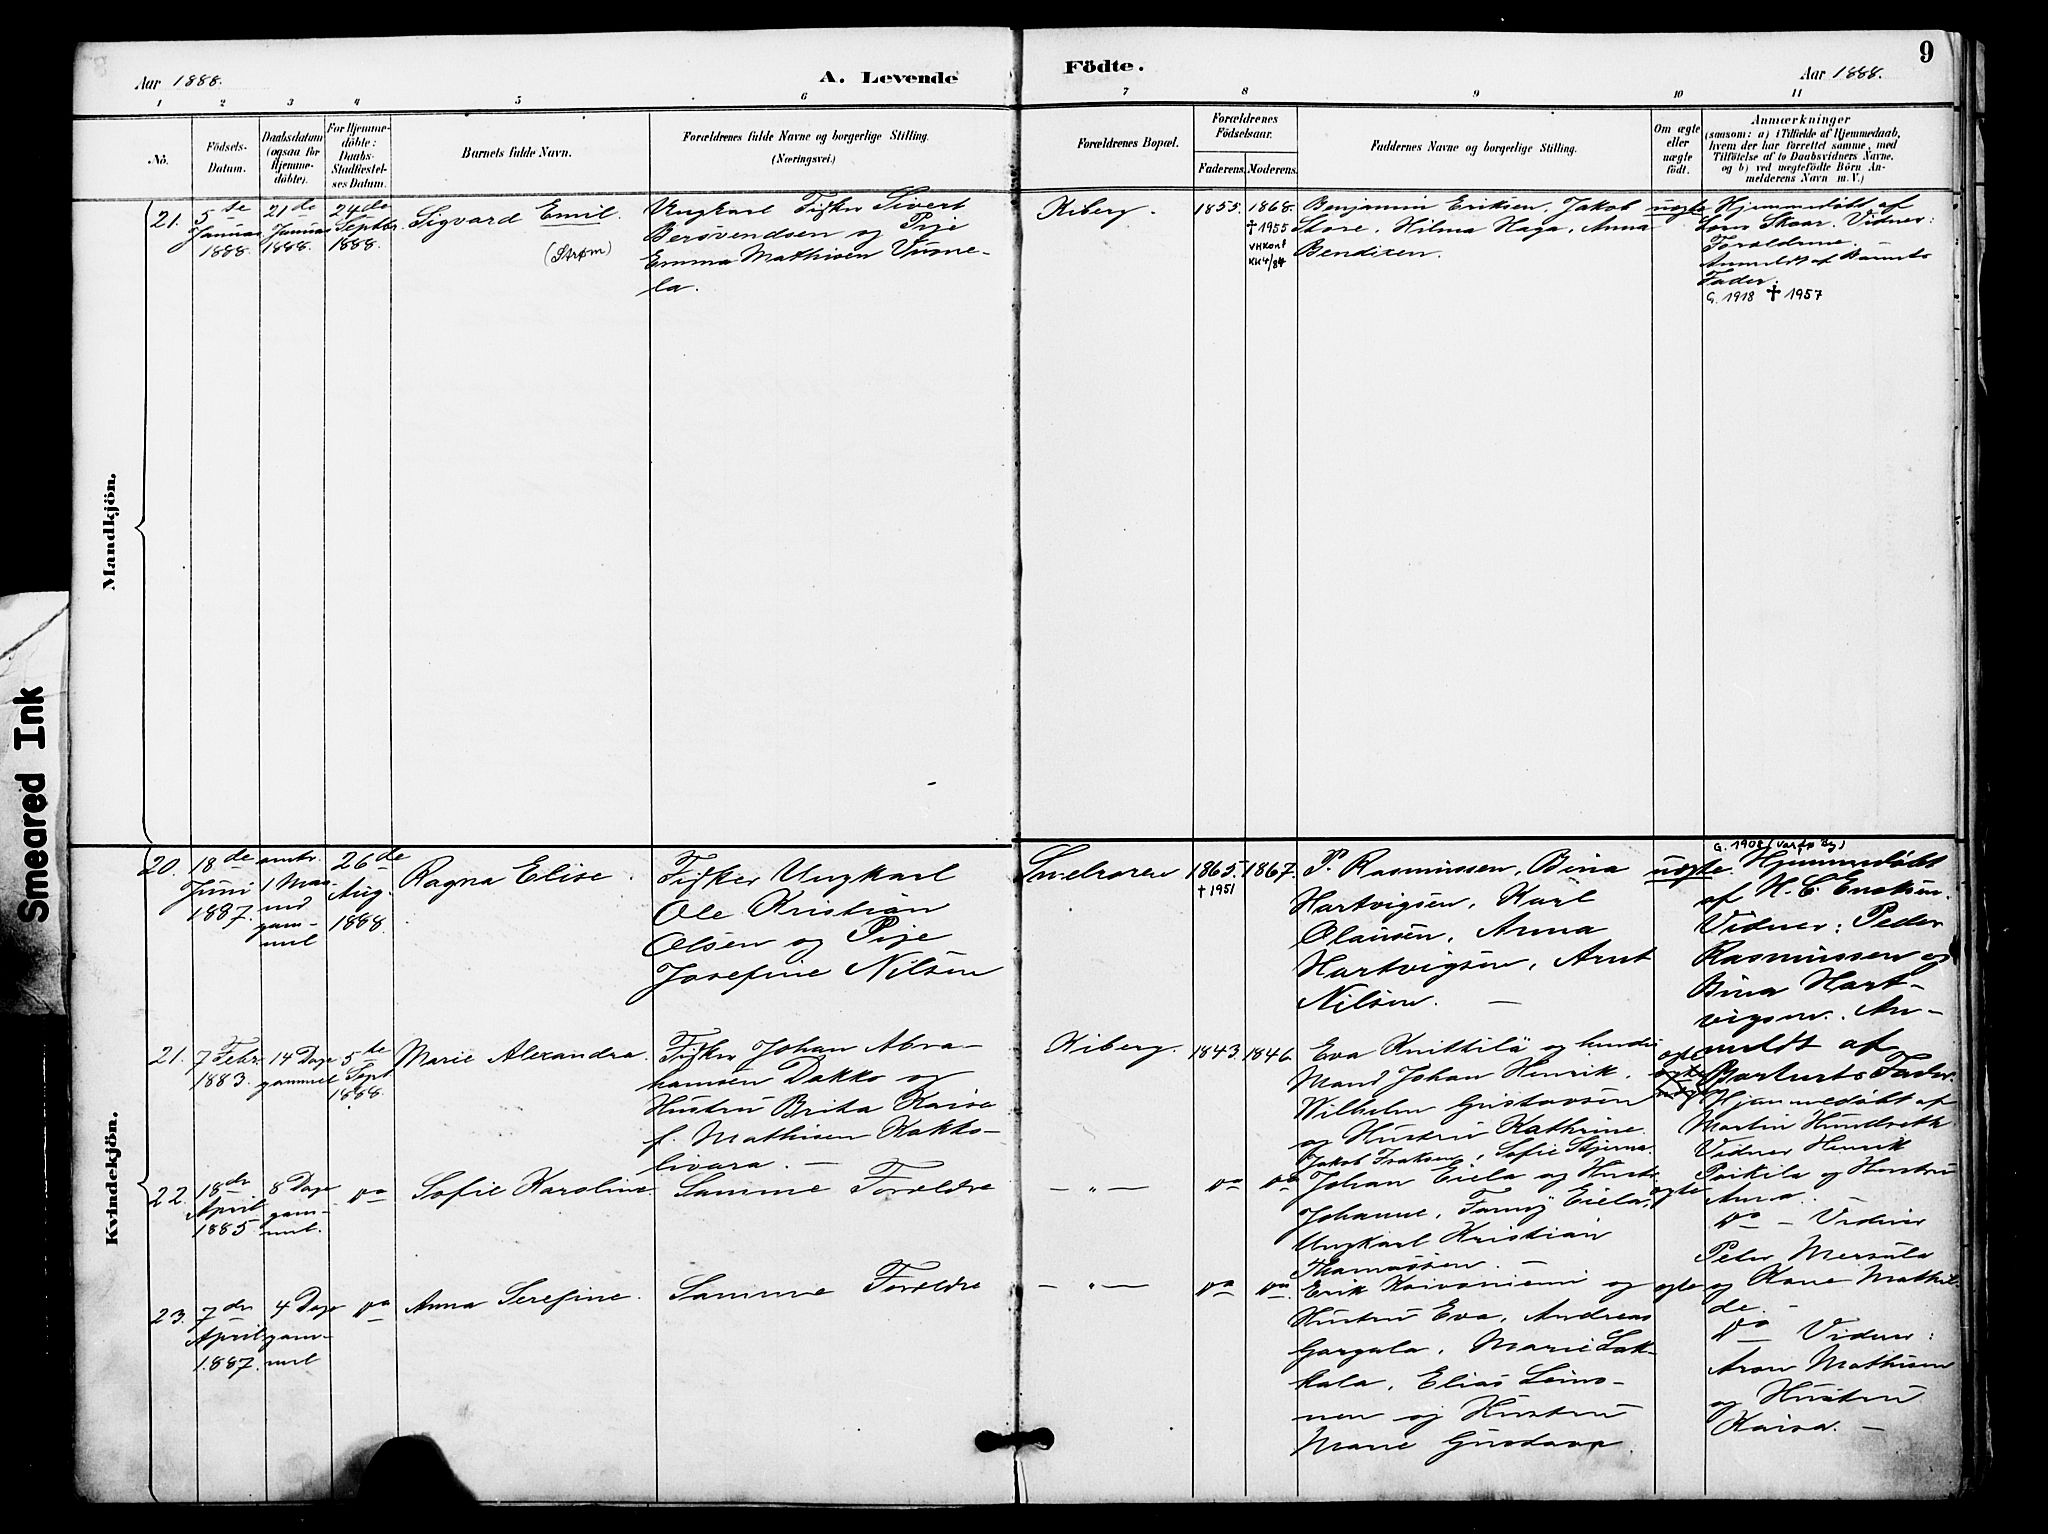 9
Aar 1888.
A. Levende
Födte.
Aar 1888.
1 2 3 4 5 6 7 8 9 10 11
No.
Födsels-
Datum.
Daabsdatum
(ogsaa for
Hjemme-
döbte).
For Hjemme-
döbte:
Daabs-
Stadfæstel-
ses Datum.
Barnets fulde Navn.
Forældrenes fulde Navne og borgerlige Stilling.
(Næringsvei.)
Forældrenes Bopæl.
Forældrenes
Födselsaar.
Faderens. Moderens.
Faddernes Navne og borgerlige Stilling.
Om ægte
eller
uægte
født.
Anmærkninger
(saasom: a) i Tilfælde af Hjemmedaab,
hvem der har forrettet samme, med
Tilföielse af to Daabsvidners Navne,
og b) ved uægtefödte Börn An-
melderens Navn m. V.)
Mandkjön.
21.
5te
Januar
1888.
21de
Januar
1888.
24de
Septbr.
1888.
Sigvard Emil.
(Strøm)
Ungkarl Fisker Sivert
Bersvendsen og Pige
Emma Mathisen
la.
Kiberg.
1855.
1868.
† 1955
Benjamin Eriksen, Jakob
Store, Hilma Haga, Anna
Bendixen.
uægte
Hjemmedøbt af
Skaar. Vidner:
Forældrene.
Anmeldt af Barnets
Fader.
G. 1918 † 1957
Kvindekjön.
20.
18de
Juni
1887.
omtr.
1 Maa-
ned
gam-
mel
26de
Aug.
1888.
Ragna Elise.
Fisker Ungkarl
Ole Kristian
Olsen og Pige
Josefine Nilsen
1865.
† 1951
1867.
P. Rasmussen, Bina
Hartvigsen, Karl
Olausen, Anna
Hartvigsen, Arnt
Nilsen. —
uægte.
G. 1908 (Vardø By)
Hjemmedøbt
af H. C. Enoksen.
Vidner: Peder
Rasmussen og
Bina Hart-
vigsen. An-
meldt af
Barnets Fader.
21.
7 Febr.
1883.
14 Dage
gammel
5te
Sept
1888.
Marie Alexandra.
Fisker Johan Abra-
hamsen Dakko og
Hustru Brita Kaisa
f. Mathisen Kokko-
livara. —
Kiberg.
1843.
1846.
Eva Knittilä og hendes
Mand Johan Henrik.
Wilhelm Gustavsen
og Hustru Kathrine.
Jakob Isaksen, Sofie Stjerna.
ægte
Hjemmedøbt af
Martin Hundseth
Vidner Henrik
Paikila og Hustru
Anna.
22.
18de
April
1885.
8 Dage
gam-
mel.
Do
Sofie Karoline.
Samme Forældre
— " —
Do
Do
Johan Eiela og Hustr.
Johanne, Fanny Eiela,
Ungkarl Kristian
Thomassen. —
ægte
Do — Vidner
Peter Mersula
og Kone Mathil-
de. —
23.
7de
April
1887.
4 Dage
gam-
mel
Do
Anna Serefine.
Samme Forældre
— " —
Do
Do
Erik Koivaniemi og
Hustru Eva, Andreas
Gargala, Marie Lak-
kala, Elias Leino-
nen og Hustru
Marie
ægte
Do Vidner:
Aron Mathisen
og Hustru
Kaisa. —
Smeared Ink